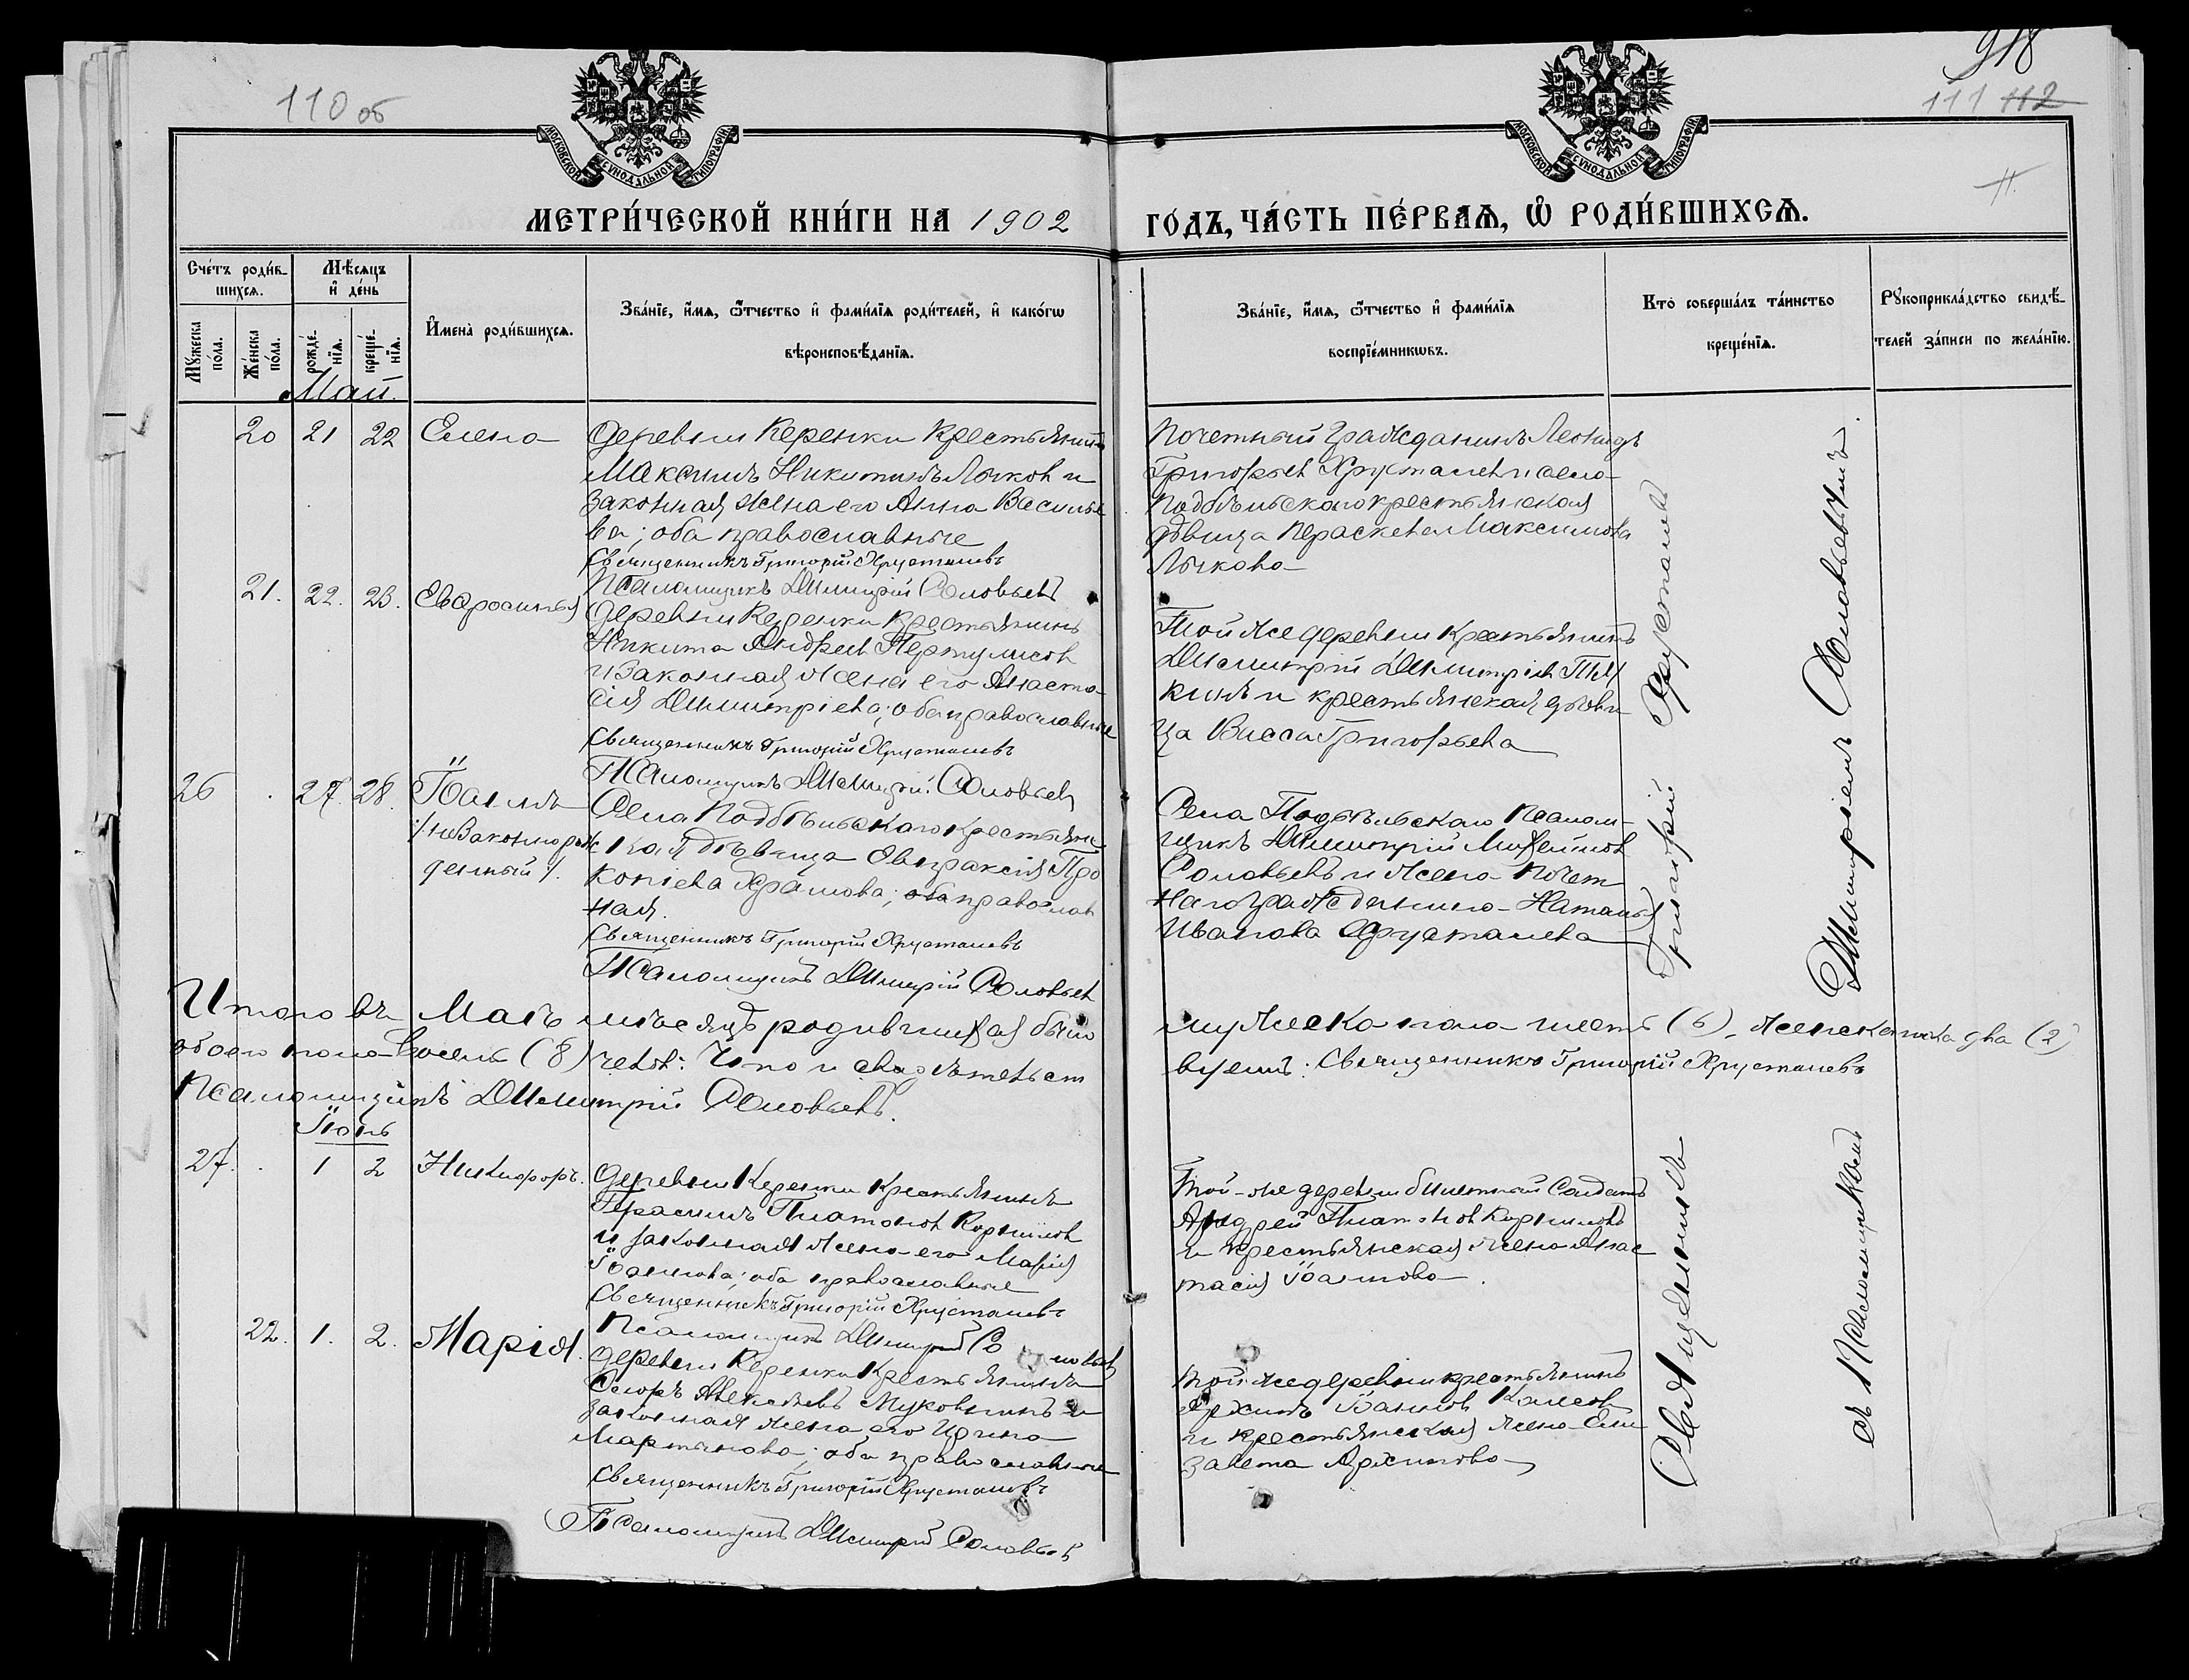 110 об
918
111 112
МОСКОВСКОЙ СѴНОДАЛЬНОЙ ТИПОГРАФІИ
МОСКОВСКОЙ СѴНОДАЛЬНОЙ ТИПОГРАФІИ
МЕТРИ́ЧЕСКОЙ КНИ́ГИ НА 1902 ГО́ДЪ, ЧА́СТЬ ПЕ́РВАЯ, Ѿ РОДИ́ВШИХСЯ.
Сче́тъ роди́в-
шихся.
Мѣ́сяцъ
и҆ де́нь
Мꙋ́жеска
по́ла.
Же́нска
по́ла.
рожде́-
нїя.
креще́-
нїя.
И҆мена̀ роди́вшихся.
Зва́нїе, и҆́мя, ѻ҆́тчество и҆ фами́лїя роди́телей, и҆ како́гѡ
вѣроисповѣ́данїя.
Зва́нїе, и҆́мя, ѻ҆́тчество и҆ фами́лїя
воспрїе́мникѡвъ.
Кто̀ соверша́лъ та́инство
креще́нїя.
Рꙋкоприкла́дство свидѣ́-
телей за́писи по жела́нїю.
Май.
20 21 22 Елена
Деревни Керенки Крестьянинъ
Максимъ Никитинъ Лычков и
законная жена его Анна Василье
ва; оба православные
Священникъ Григорій Хрусталевъ
Псаломщикъ Димитрій Соловьев
Почетный Гражданинъ Леонидъ
Григорьев Хрусталев и села
Подбѣльскаго крестьянская
дѣвица Параскева Максимова
Лычкова
21. 22. 23. Евфросинья
Деревни Керенки Крестьянинъ
Никита Андреев
и Законная жена его Анаста
сія Димитріева; оба православные
Священникъ Григорій Хрусталевъ
Псаломщикъ Димитрій Соловьев
Той же деревни Крестьянинъ
Димитрій Димитріев
и крестьянская дѣви
ца Васса Григорьева
26 27. 28. Іоаннъ
/:незаконнорож
денный:/.
Села Подбѣльскаго Крестьянс
кая дѣвица Евпраксія Про
копіева Храмова; оба православ
ная.
Священникъ Григорій Хрусталевъ
Псаломщикъ Димитрій Соловьев
Села Подбѣльскаго Псалом-
щикъ Димитрій
Соловьевъ и жена Почет
наго Гражданина Наталья
Иванова Хрусталева
Итого въ Маѣ мѣсяцѣ родившихся было мужеска пола шесть (6) женска пола два (2)
обоего пола восемь (8) человѣкъ: Что и свидѣтельст вуемъ: Священникъ Григорій Хрусталевъ
Псаломщикъ Димитрій Соловьевъ.
Іюнь
27. 1 2 Никифоръ.
Деревни Керенки Крестьянинъ
Герасимъ Платонов Корнилов
и законная жена его Марія
Іоаннова; оба православные
Священникъ Григорій Хрусталевъ
Псаломщикъ Димитрій Соловьев
Той-же деревни билетный Солдатъ
Андрей Платонов Корниловъ
и крестьянская жена Анас
тасія Іоаннова.
22. 1. 2. Марія.
Деревни Керенки Крестьянинъ
Ѳеодоръ Алексѣевъ Муковнинъ и
законная жена его Ирина
Мартынова; оба православные
Священникъ Григорій Хрусталевъ
Псаломщикъ Димитрій Соловьев
Той же деревни крестьянинъ
Архипъ Іоаннов
и крестьянская жена Ели
завета Архипова
Священникъ Григорій Хрусталевъ
съ Псаломщикомъ Димитріемъ Соловьевымъ.